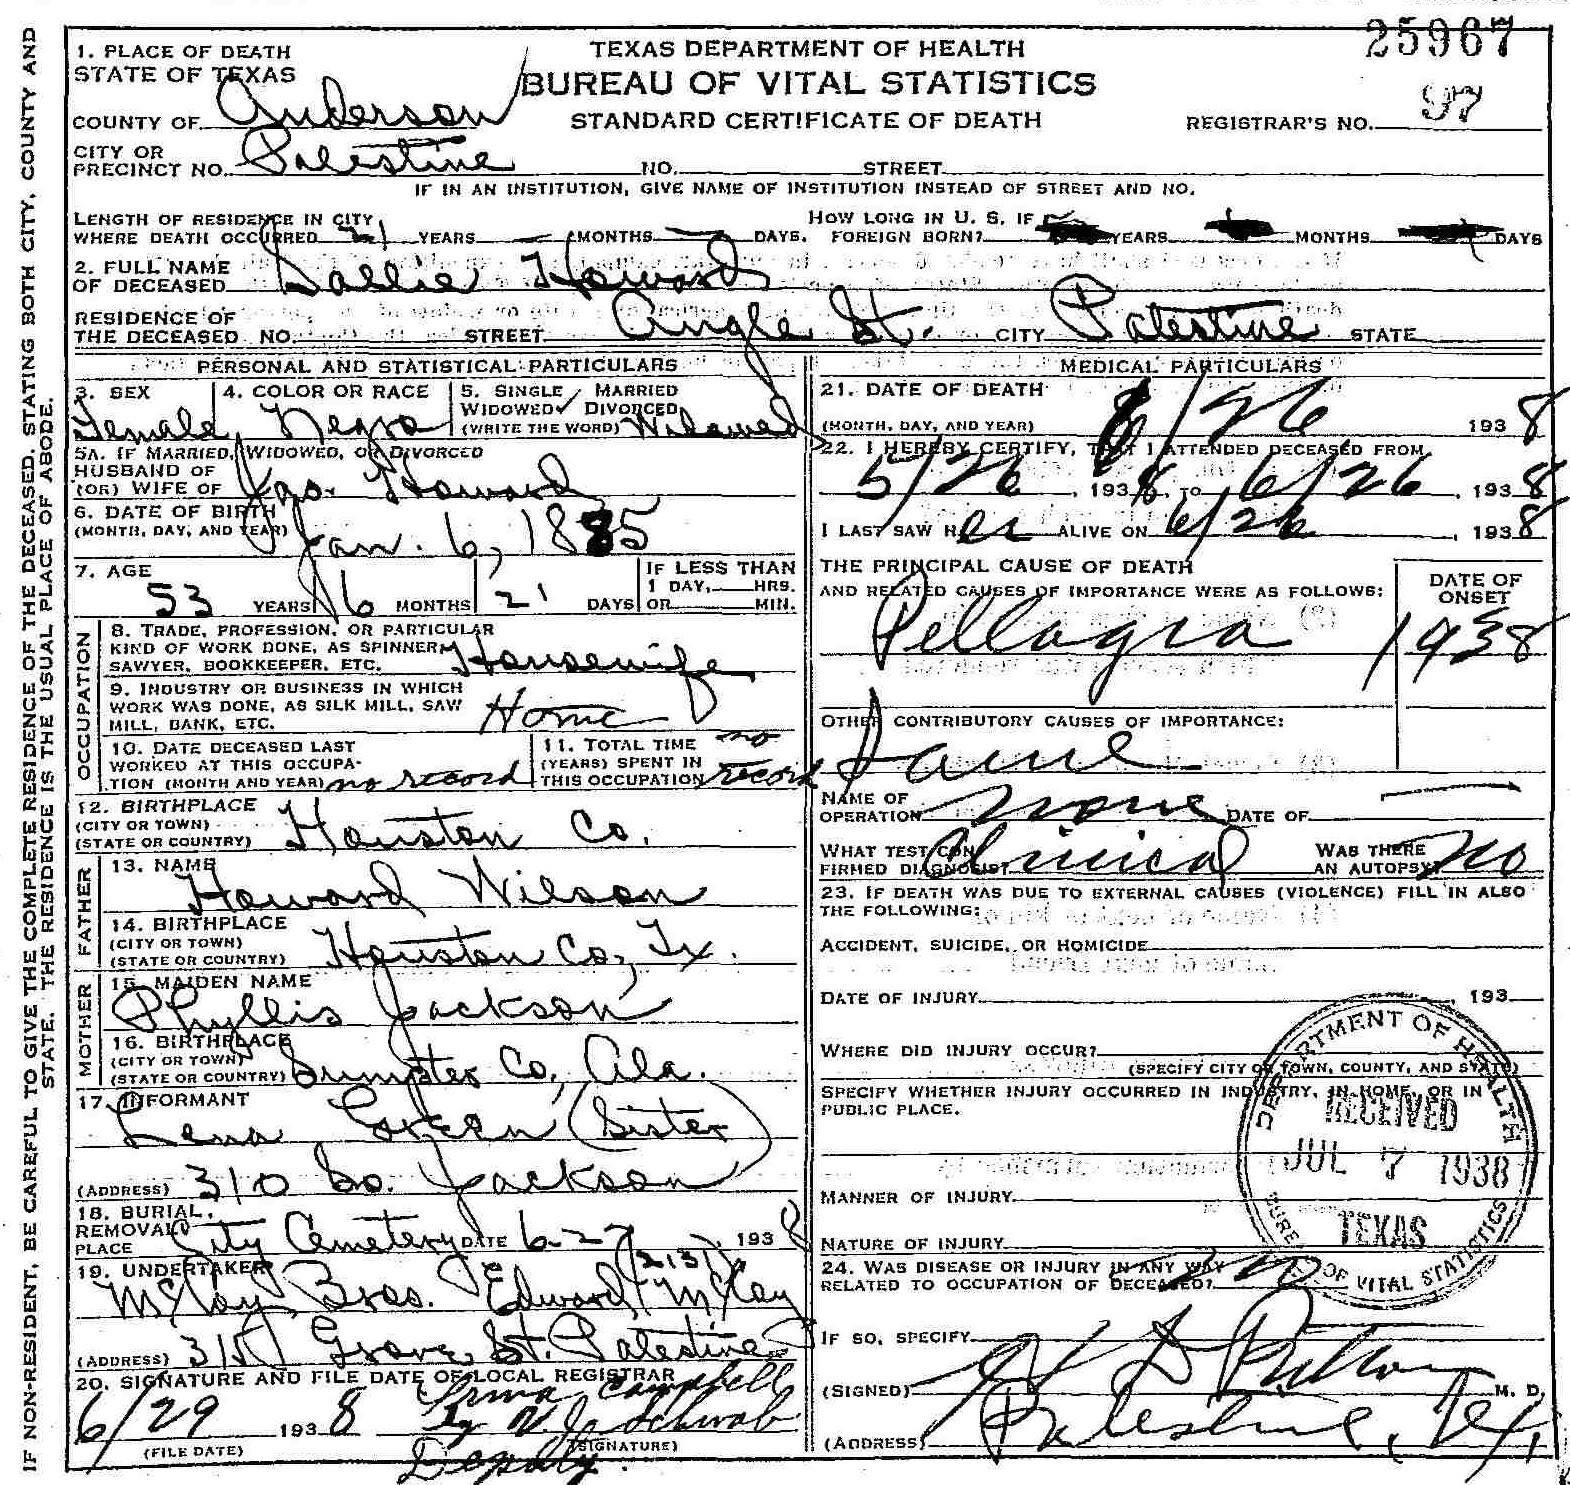 25967
1. PLACE OF DEATH
STATE OF TEXAS
TEXAS DEPARTMENT OF HEALTH
BUREAU OF VITAL STATISTICS
STANDARD CERTIFICATE OF DEATH
COUNTY OF Anderson
REGISTRAR'S NO. 97
CITY OR
PRECINCT NO. Palestine NO. STREET
IF IN AN INSTITUTION, GIVE NAME OF INSTITUTION INSTEAD OF STREET AND NO.
LENGTH OF RESIDENCE IN CITY
WHERE DEATH OCCURRED 21 YEARS — MONTHS — DAYS.
HOW LONG IN U. S. IF
FOREIGN BORN? YEARS MONTHS DAYS
2. FULL NAME
OF DECEASED Sallie Howard
RESIDENCE OF
THE DECEASED NO. STREET Angle St. CITY Palestine STATE
PERSONAL AND STATISTICAL PARTICULARS
3. SEX Female
4. COLOR OR RACE Negro
5. SINGLE MARRIED
WIDOWED✓ DIVORCED
(WRITE THE WORD) Widowed
5A. IF MARRIED, WIDOWED, OR DIVORCED
HUSBAND OF
(OR) WIFE OF Jas. Howard
6. DATE OF BIRTH
(MONTH, DAY, AND YEAR) Jan. 6, 1885
7. AGE
53 YEARS 6 MONTHS 21 DAYS
IF LESS THAN
1 DAY, HRS.
OR MIN.
OCCUPATION
8. TRADE, PROFESSION, OR PARTICULAR
KIND OF WORK DONE, AS SPINNER,
SAWYER, BOOKKEEPER, ETC. Housewife
9. INDUSTRY OR BUSINESS IN WHICH
WORK WAS DONE, AS SILK MILL, SAW
MILL, BANK, ETC. Home
10. DATE DECEASED LAST
WORKED AT THIS OCCUPA-
TION (MONTH AND YEAR) no record
11. TOTAL TIME
(YEARS) SPENT IN
THIS OCCUPATION no record
12. BIRTHPLACE
(CITY OR TOWN)
(STATE OR COUNTRY) Houston Co.
FATHER
13. NAME
Howard Wilson
14. BIRTHPLACE
(CITY OR TOWN)
(STATE OR COUNTRY) Houston Co, Tx.
MOTHER
15. MAIDEN NAME
Phyllis Jackson
16. BIRTHPLACE
(CITY OR TOWN)
(STATE OR COUNTRY) Sumpter Co, Ala.
17. INFORMANT
Lena Green (Sister)
(ADDRESS) 310 So. Jackson
18. BURIAL,
REMOVAL
PLACE City Cemetery DATE 6-27, 1938
19. UNDERTAKER (213)
McKay Bros. Edward McKay
(ADDRESS) Grove St. Palestine
20. SIGNATURE AND FILE DATE OF LOCAL REGISTRAR
6/29 1938 Irma Campbell
by Schwab
(FILE DATE) (SIGNATURE)
Deputy.
MEDICAL PARTICULARS
21. DATE OF DEATH
(MONTH, DAY, AND YEAR) 6/26 1938
22. I HEREBY CERTIFY, THAT I ATTENDED DECEASED FROM
5/26, 1938, TO 6/26, 1938
I LAST SAW HER ALIVE ON 6/26, 1938
THE PRINCIPAL CAUSE OF DEATH
AND RELATED CAUSES OF IMPORTANCE WERE AS FOLLOWS:
DATE OF
ONSET
Pellagra 1938
OTHER CONTRIBUTORY CAUSES OF IMPORTANCE:
Same
NAME OF
OPERATION none DATE OF —
WHAT TEST CON-
FIRMED DIAGNOSIS? Clinical
WAS THERE
AN AUTOPSY? No
23. IF DEATH WAS DUE TO EXTERNAL CAUSES (VIOLENCE) FILL IN ALSO
THE FOLLOWING:
ACCIDENT, SUICIDE, OR HOMICIDE
DATE OF INJURY , 193
WHERE DID INJURY OCCUR?
(SPECIFY CITY OR TOWN, COUNTY, AND STATE)
SPECIFY WHETHER INJURY OCCURRED IN INDUSTRY, IN HOME, OR IN
PUBLIC PLACE.
MANNER OF INJURY
NATURE OF INJURY
24. WAS DISEASE OR INJURY IN ANY WAY
RELATED TO OCCUPATION OF DECEASED? no
IF SO, SPECIFY
(SIGNED) M. D.
(ADDRESS) Palestine, Tex.
DEPARTMENT OF HEALTH
RECEIVED
JUL 7 1938
TEXAS
BUREAU OF VITAL STATISTICS
IF NON-RESIDENT, BE CAREFUL TO GIVE THE COMPLETE RESIDENCE OF THE DECEASED, STATING BOTH CITY, COUNTY AND
STATE. THE RESIDENCE IS THE USUAL PLACE OF ABODE.